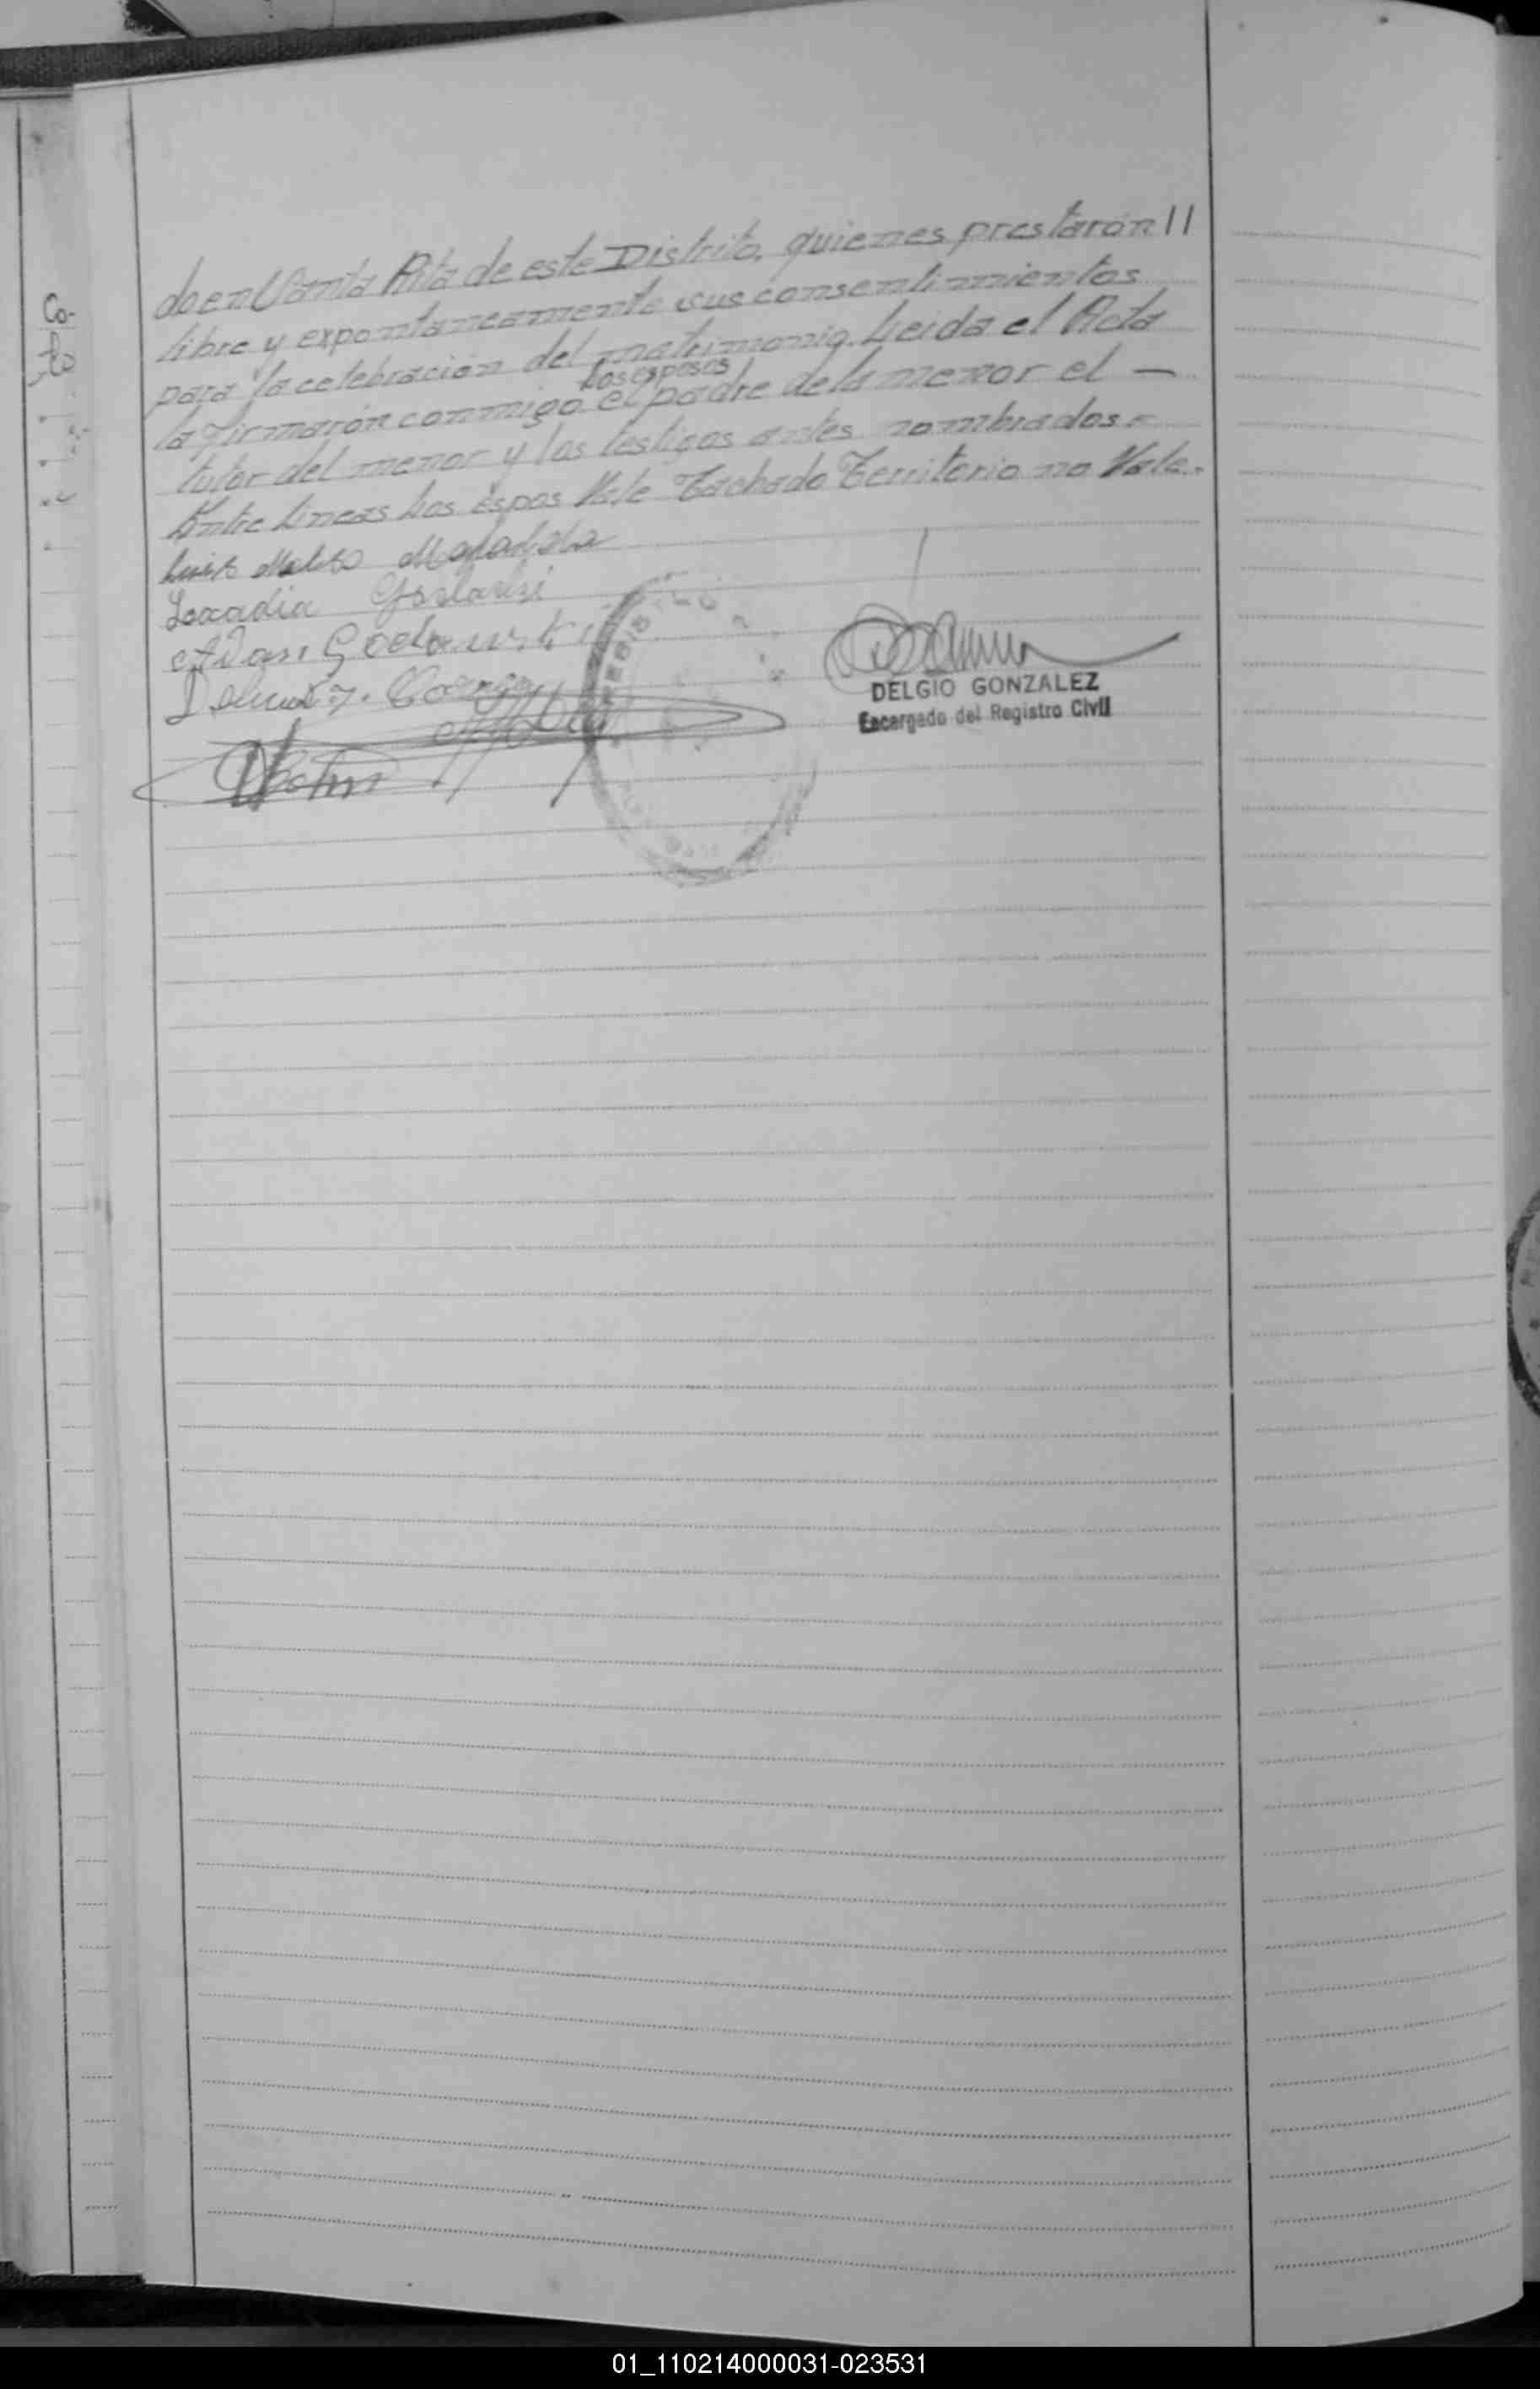 Co-
do en Santa Rita de este Distrito, quienes prestarón //
libre y expontaneamente sus consentimientos
para la celebración del matrimonio. Leida el Acta
los esposos
la firmarón conmigo el padre de la menor el —
tutor del menor y los testigos antes nombrados =
Entre lineas los espos Vale Tachado Territorio no Vale.
Luis
Leocadia
Adan
DELGIO GONZALEZ
Encargado del Registro Civil
01_110214000031-023531